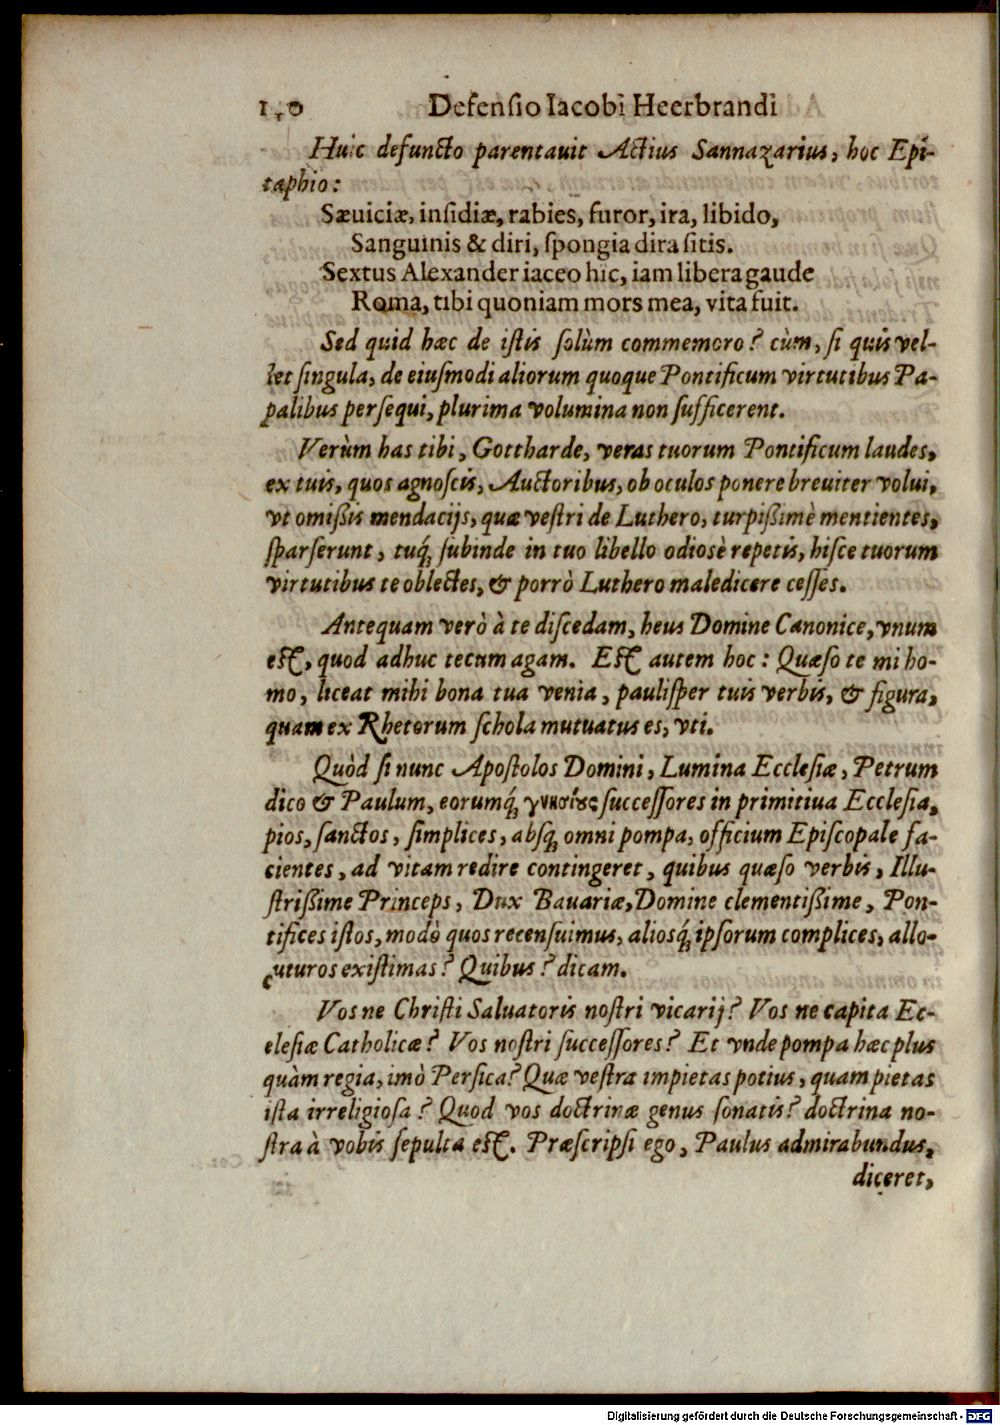 Defensio Iacobi Heerbrandi
Huic defuncto parentauit Actius Sannazarius, hoc Epi-
taphio:
Sæuiciæ, insidiæ, rabies, furor, ira, libido,
Sanguinis & diri, spongia dira sitis.
Sextus Alexander iaceo hîc, iam libera gaude
Roma, tibi quoniam mors mea, vita fuit.
Sed quid hæc de istis solùm commemoro? cùm, si quis vel-
let singula, de eiusmodi aliorum quoque Pontificum virtutibus Pa-
palibus persequi, plurima volumina non sufficerent.
Verùm has tibi, Gottharde, veras tuorum Pontificum laudes,
ex tuis, quos agnoscis, Auctoribus, ob oculos ponere breuiter volui,
vt omißis mendacijs, quæ vestri de Luthero, turpißimè mentientes,
sparserunt, tuq́ꝫ subinde in tuo libello odiosè repetis, hisce tuorum
virtutibus te oblectes, & porrò Luthero maledicere cesses.
Antequam verò à te discedam, heus Domine Canonice, vnum
est, quod adhuc tecum agam. Est autem hoc: Quæso te mi ho-
mo, liceat mihi bona tua venia, paulisper tuis verbis, & figura,
quam ex Rhetorum schola mutuatus es, vti.
Quòd si nunc Apostolos Domini, Lumina Ecclesiæ, Petrum
dico & Paulum, eorumq́ꝫ γνησίους successores in primitiua Ecclesia,
pios, sanctos, simplices, absqꝫ omni pompa, officium Episcopale fa-
cientes, ad vitam redire contingeret, quibus quæso verbis, Illu-
strißime Princeps, Dux Bauariæ, Domine clementißime, Pon-
tifices istos, modò quos recensuimus, aliosq́ꝫ ipsorum complices, allo-
cuturos existimas? Quibus? dicam.
Vos ne Christi Saluatoris nostri vicarij? Vos ne capita Ec-
clesiæ Catholicæ? Vos nostri successores? Et vnde pompa hæc plus
quàm regia, imò Persica? Quæ vestra impietas potius, quam pietas
ista irreligiosa? Quod vos doctrinæ genus sonatis? doctrina no-
stra à vobis sepulta est. Præscripsi ego, Paulus admirabundus,
diceret,
Digitalisierung gefördert durch die Deutsche Forschungsgemeinschaft - DFG